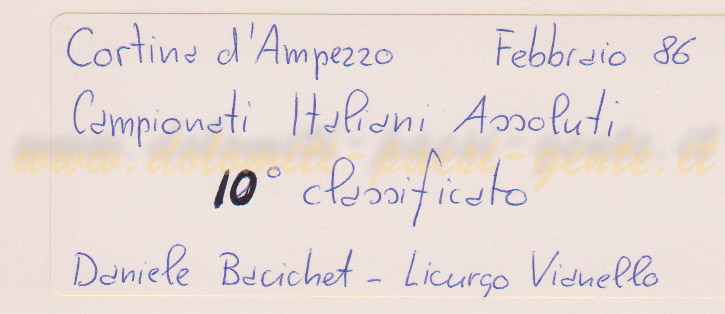 Cortina d'Ampezzo Febbraio 86
Campionati Italiani Assoluti
www.dolomiti-paesi-gente.it
10° classificato
Daniele Bacichet - Licurgo Vianello